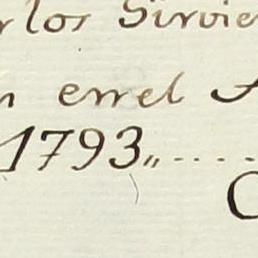 rlos Sirvie
n enel A
1793,,....
C